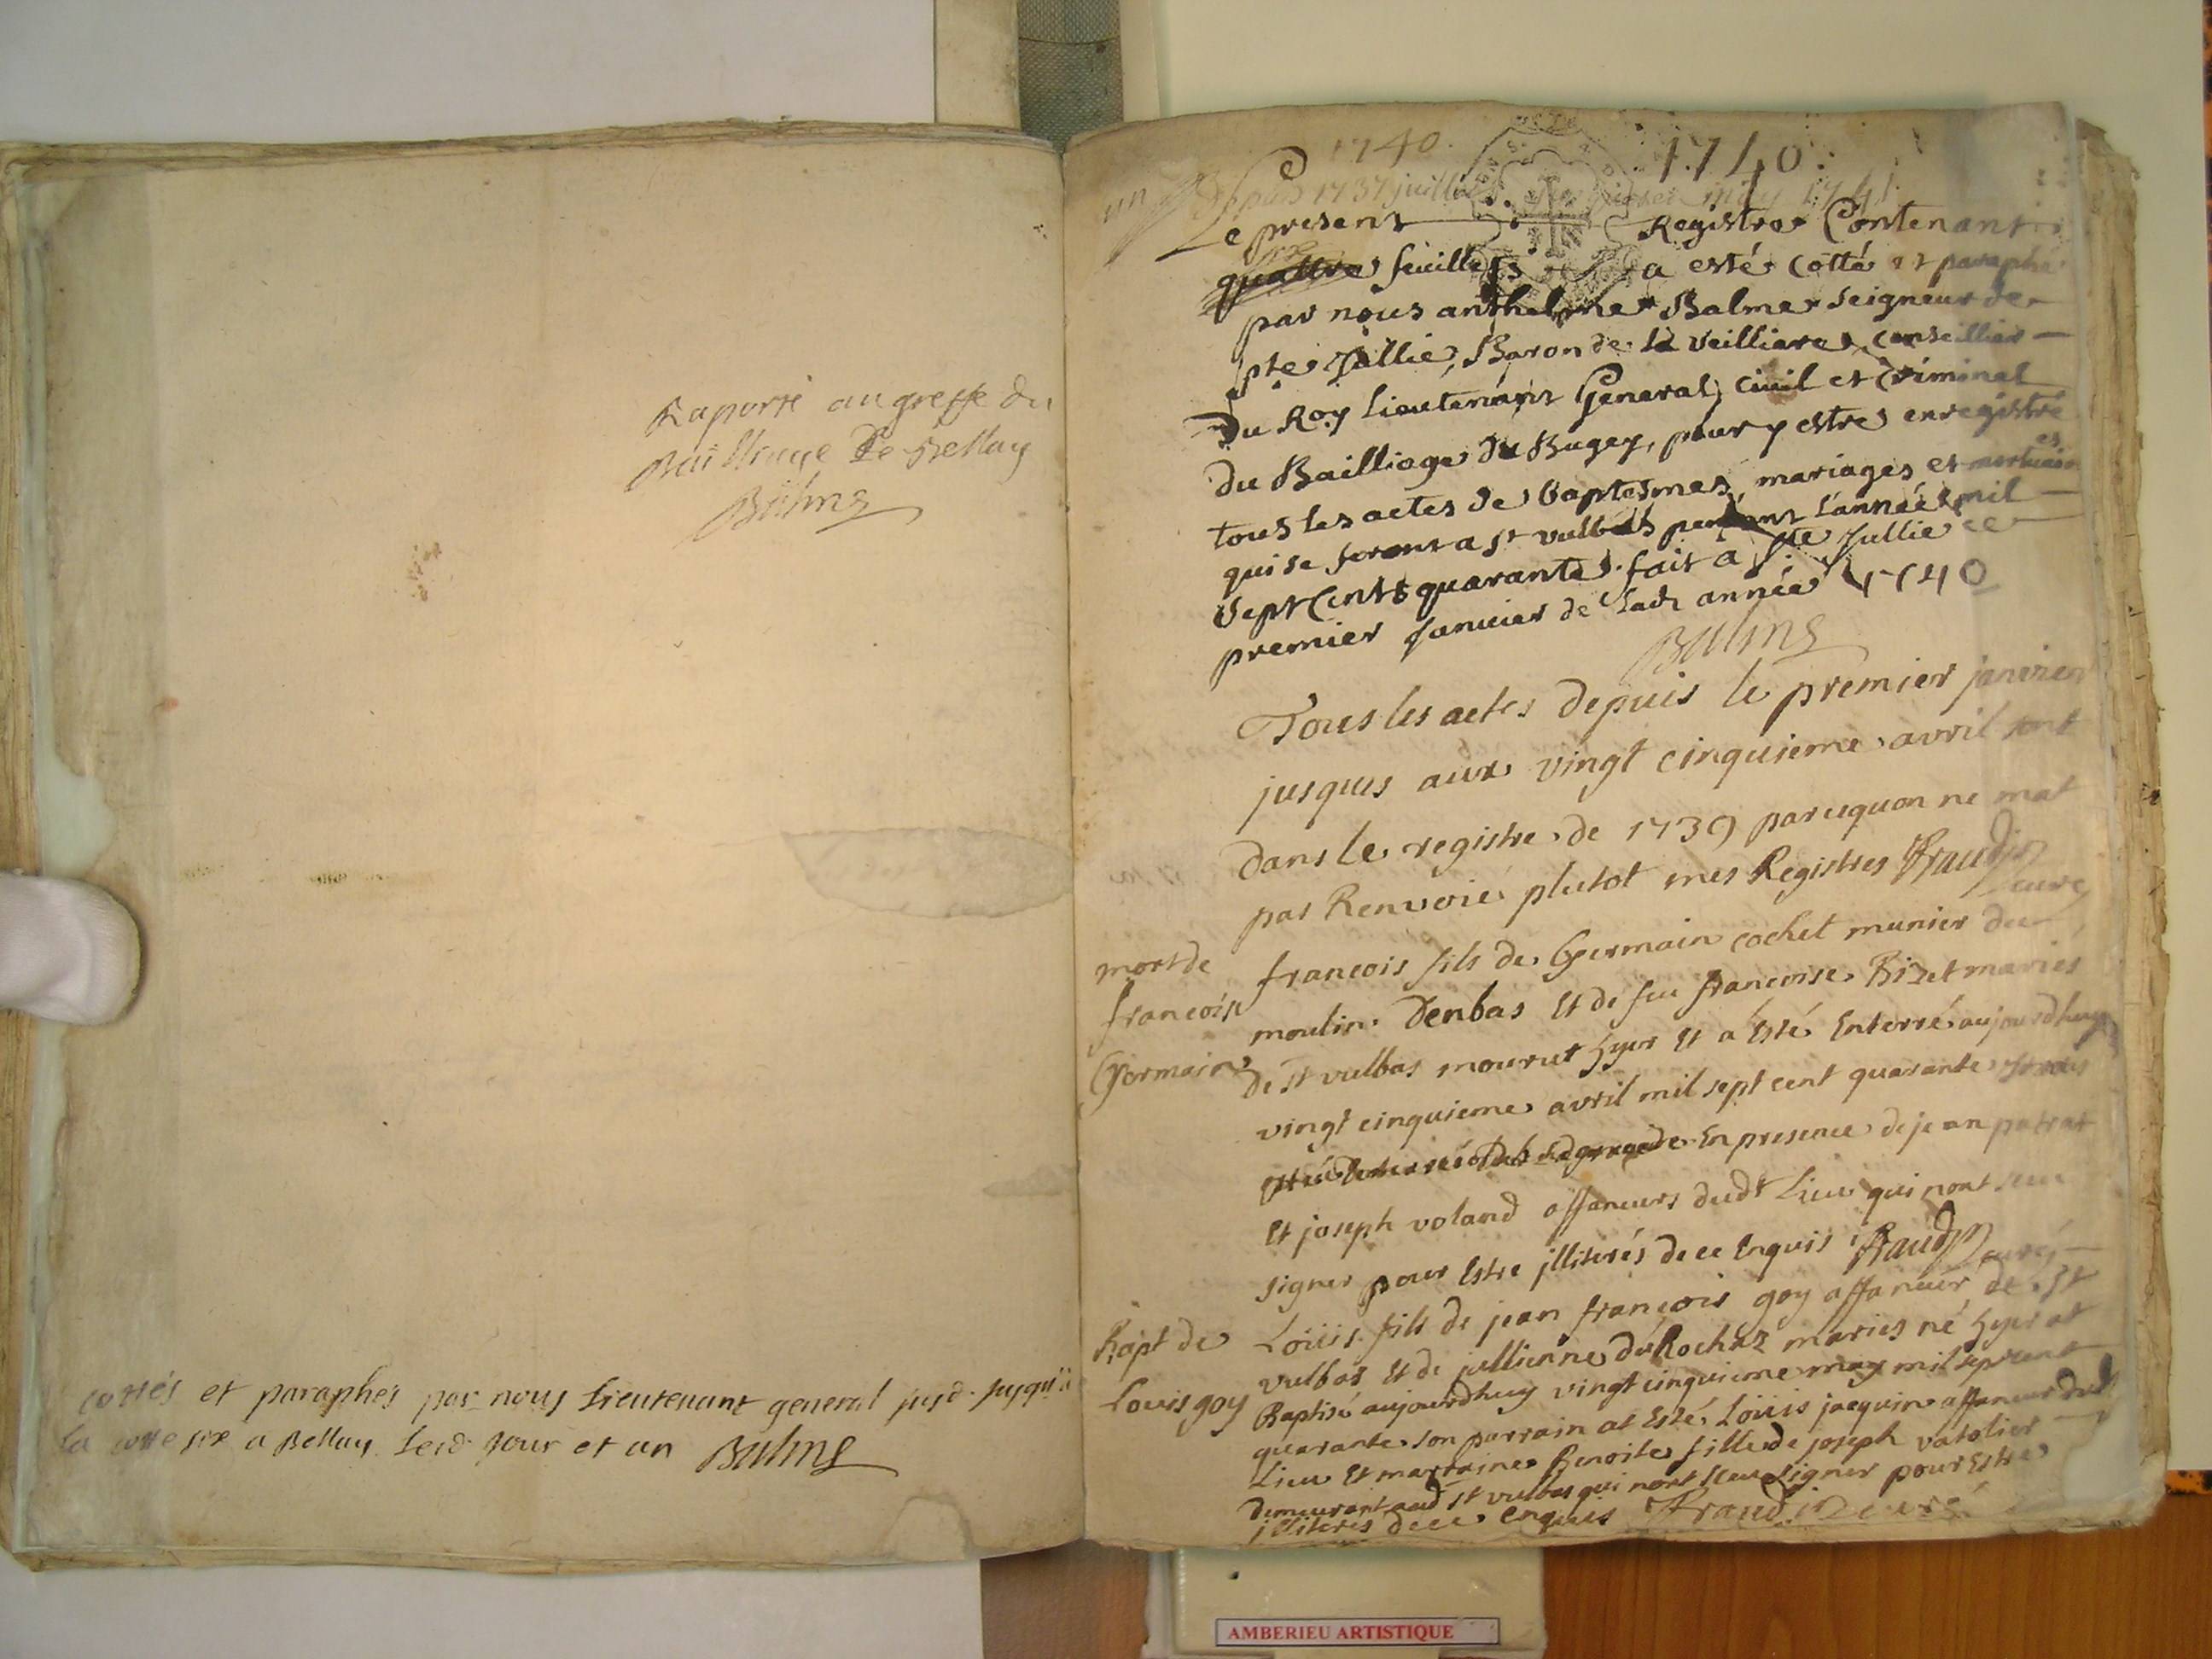 Raporté au greffe du
Bailliage de Bellay
Balme
cottés et paraphés par nous Lieutenant general susd. jusqu'a
la cotte six a Bellay lesd. jour et an Balme
1740.
1740.
un
Depuis 1737 juillet may 1741
Le present Registre Contenant
six
quattre feuillets a esté cotté et paraphé
par nous anthelme Balme seigneur de
ste Jullie, Baron de la veilliere, conseillier
Du Roy Lieutenant General, civil et Criminel
du Bailliage du Bugey, pour y estre enregistré
tous les actes de baptesmes, mariages et mortuaires
qui se feront a st vulbas pendant l'année mil
sept Cents quarante. fait a ste Jullie ce
premier Janvier de lade année 1740
Balme
Tous les actes depuis le premier janvier
jusques aux vingt cinquieme avril sont
dans le registre de 1739 parcequon ne mat
pas Renvoié plutot mes Registres
curé
mort de
francois
Germain
francois fils de Germain cochet munier du
moulin Denbas Et de feu francoise Bizet mariés
de st vulbas mourut hyer Et a Esté Enterré aujourdhuy
vingt cinquieme avril mil sept cent quarante
En presence de jean patrat
Et joseph voland affaneurs dudt Lieu qui nont sceu
signer pour Estre jlliterés de ce Enquis curé
Bapt de
Louis goy
Loüis fils de jean francois goy affaneur de st
vulbas Et de jullienne du Rochaz mariés né hyer at
Baptisé aujourdhuy vingt cinquieme may mil sept cent
quarante son parrain at Esté Loüis jacquin affaneur dudt
Lieu Et marraine Benoite fille de joseph vatolier
demeurant aud st vulbas qui nont sceu signer pour Estre
jlliterés de ce enquis curé
AMBERIEU ARTISTIQUE